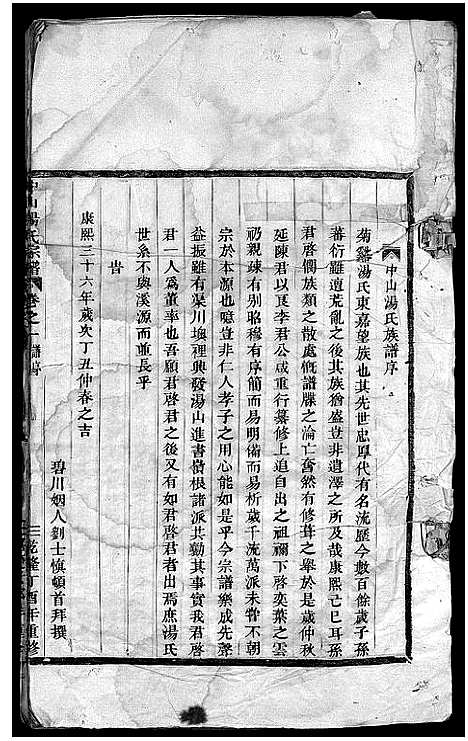 中山湯氏族譜序
菊谿湯氏東嘉望族也其先世忠厚代有名流歷今數百餘歲子孫
蕃衍雖遭荒亂之後其族猶盛豈非遺澤之所及哉康熙己巳耳孫
君啓憫族類之散處慨譜牒之淪亡奮然有修葺之舉於是歲仲秋
延陳君以 李君公咸重行纂修上追自出之祖禰下啓奕葉之雲
礽親疎有別昭穆有序簡而易明備而易析歲千流萬派未嘗不朝
宗於本源也噫豈非仁人孝子之用心能如是乎今宗譜樂成先聲
益振雖有渠川墺裡興發湯山進書嶺根諸派共勷其事實我君啓
君一人為董率也吾願君啓君之後又有如君啓君者出焉庶湯氏
世系不與溪源而並長乎
旹
康熙三十六年歲次丁丑仲春之吉
碧川姻人劉士慎頓首拜撰
中山湯氏宗譜 卷之一 譜序
乾隆丁酉年重修